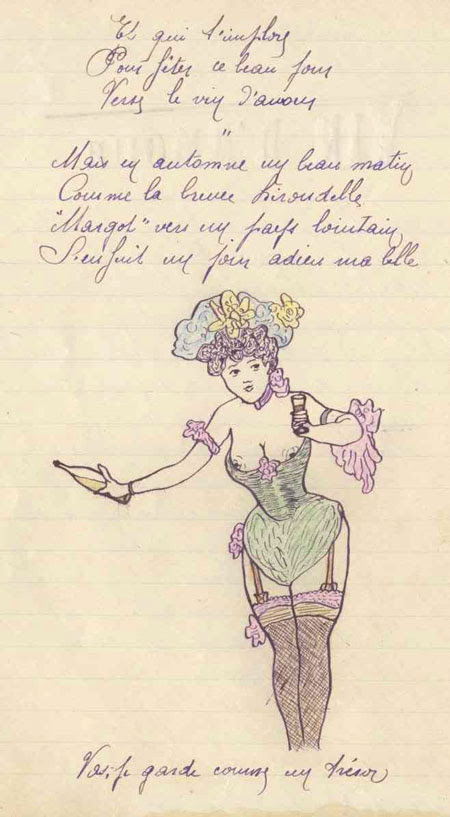 Et qui t'implore
Pour fêter ce beau jour
Verse le vin d'amour
"
Mais un automne un beau matin
Comme la brune hirondelle
"Margot" vers un pays lointain
S'enfuit un jour adieu ma belle
Vas, je garde comme un trésor